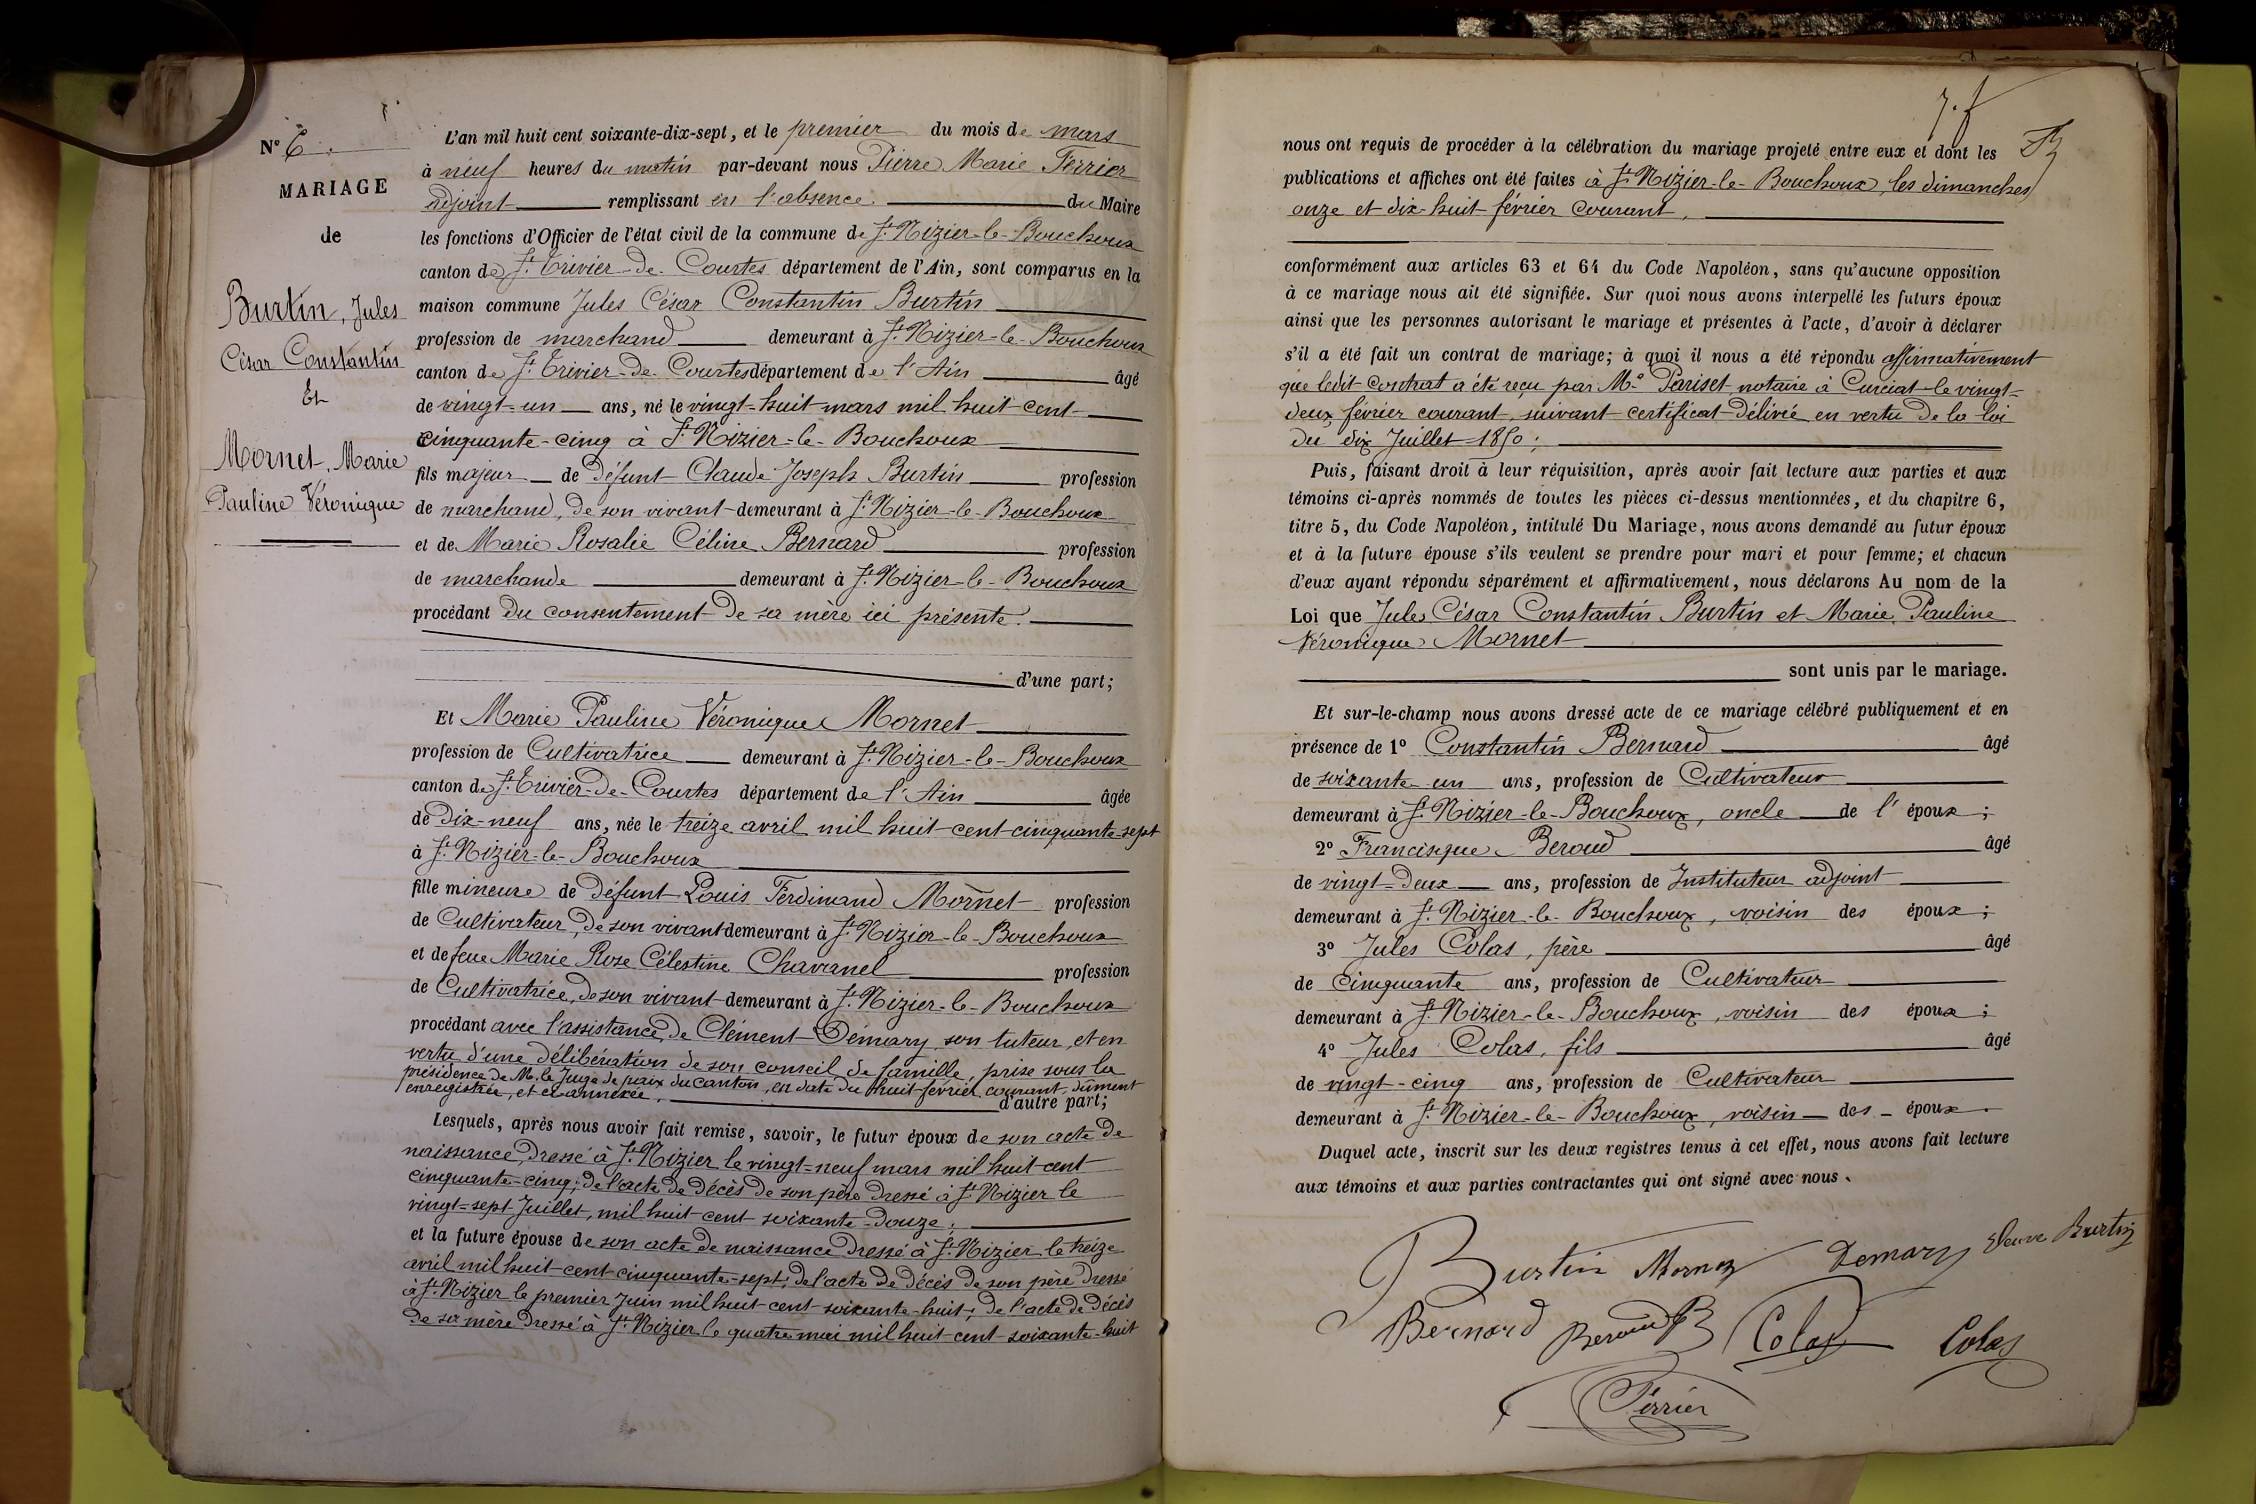 N° 6.
MARIAGE
de
Burtin, Jules
César Constantin
Et
Mornet, Marie
Pauline Véronique
L'an mil huit cent soixante-dix-sept, et le premier du mois de mars
à neuf heures du matin par-devant nous Pierre Marie Perrier
adjoint remplissant en l'absence du Maire
les fonctions d'Officier de l'état civil de la commune de St Nizier-le-Bouchoux
canton de St Trivier-de-Courtes département de l'Ain, sont comparus en la
maison commune Jules César Constantin Burtin
profession de marchand demeurant à St Nizier-le-Bouchoux
canton de St Trivier-de-Courtes département de l'Ain âgé
de vingt-un ans, né le vingt-huit mars mil huit cent
cinquante-cinq à St Nizier-le-Bouchoux
fils majeur de défunt Claude Joseph Burtin profession
de marchand, de son vivant demeurant à St Nizier-le-Bouchoux
et de Marie Rosalie Céline Bernard profession
de marchande demeurant à St Nizier-le-Bouchoux
procédant du consentement de sa mère ici présente.
d'une part;
Et Marie Pauline Véronique Mornet
profession de Cultivatrice demeurant à St Nizier-le-Bouchoux
canton de St Trivier-de-Courtes département de l'Ain âgée
de dix-neuf ans, née le treize avril mil huit cent cinquante-sept
à St Nizier-le-Bouchoux
fille mineure de défunt Louis Ferdinand Mornet profession
de Cultivateur, de son vivant demeurant à St Nizier-le-Bouchoux
et de feue Marie Rose Célestine Chavanel profession
de Cultivatrice, de son vivant demeurant à St Nizier-le-Bouchoux
procédant avec l'assistance de Clément Démary, son tuteur, et en
vertu d'une délibération de son conseil de famille, prise sous la
présidence de M. le Juge de paix du canton, en date du huit février courant, dûment
enregistrée, et ci annexée, d'autre part;
Lesquels, après nous avoir fait remise, savoir, le futur époux de son acte de
naissance dressé à St Nizier le vingt-neuf mars mil huit cent
cinquante-cinq; de l'acte de décès de son père dressé à St Nizier le
vingt-sept Juillet, mil huit cent soixante-douze;
et la future épouse de son acte de naissance dressé à St Nizier le treize
avril mil huit cent cinquante-sept; de l'acte de décès de son père dressé
à St Nizier le premier Juin mil huit cent soixante-huit; de l'acte de décès
de sa mère dressé à St Nizier le quatre mai mil huit cent soixante-huit
nous ont requis de procéder à la célébration du mariage projeté entre eux et dont les
publications et affiches ont été faites à St Nizier-le-Bouchoux, les dimanches
onze et dix-huit février courant,
conformément aux articles 63 et 64 du Code Napoléon, sans qu'aucune opposition
à ce mariage nous ait été signifiée. Sur quoi nous avons interpellé les futurs époux
ainsi que les personnes autorisant le mariage et présentes à l'acte, d'avoir à déclarer
s'il a été fait un contrat de mariage; à quoi il nous a été répondu affirmativement
que ledit contrat a été reçu par Me Pariset notaire à Curciat le vingt-
deux février courant, suivant certificat délivré en vertu de la loi
du dix Juillet 1850;
Puis, faisant droit à leur réquisition, après avoir fait lecture aux parties et aux
témoins ci-après nommés de toutes les pièces ci-dessus mentionnées, et du chapitre 6,
titre 5, du Code Napoléon, intitulé Du Mariage, nous avons demandé au futur époux
et à la future épouse s'ils veulent se prendre pour mari et pour femme; et chacun
d'eux ayant répondu séparément et affirmativement, nous déclarons Au nom de la
Loi que Jules César Constantin Burtin et Marie Pauline
Véronique Mornet
sont unis par le mariage.
Et sur-le-champ nous avons dressé acte de ce mariage célébré publiquement et en
présence de 1° Constantin Bernard âgé
de soixante-un ans, profession de Cultivateur
demeurant à St Nizier-le-Bouchoux, oncle de l'époux;
2° Francisque Beroud âgé
de vingt-deux ans, profession de Instituteur adjoint
demeurant à St Nizier-le-Bouchoux, voisin des époux;
3° Jules Colas, père âgé
de cinquante ans, profession de Cultivateur
demeurant à St Nizier-le-Bouchoux, voisin des époux;
4° Jules Colas, fils âgé
de vingt-cinq ans, profession de Cultivateur
demeurant à St Nizier-le-Bouchoux, voisin des époux.
Duquel acte, inscrit sur les deux registres tenus à cet effet, nous avons fait lecture
aux témoins et aux parties contractantes qui ont signé avec nous.
Burtin Mornet Demary Veuve Burtin
Bernard Beroud Colas Colas
Perrier